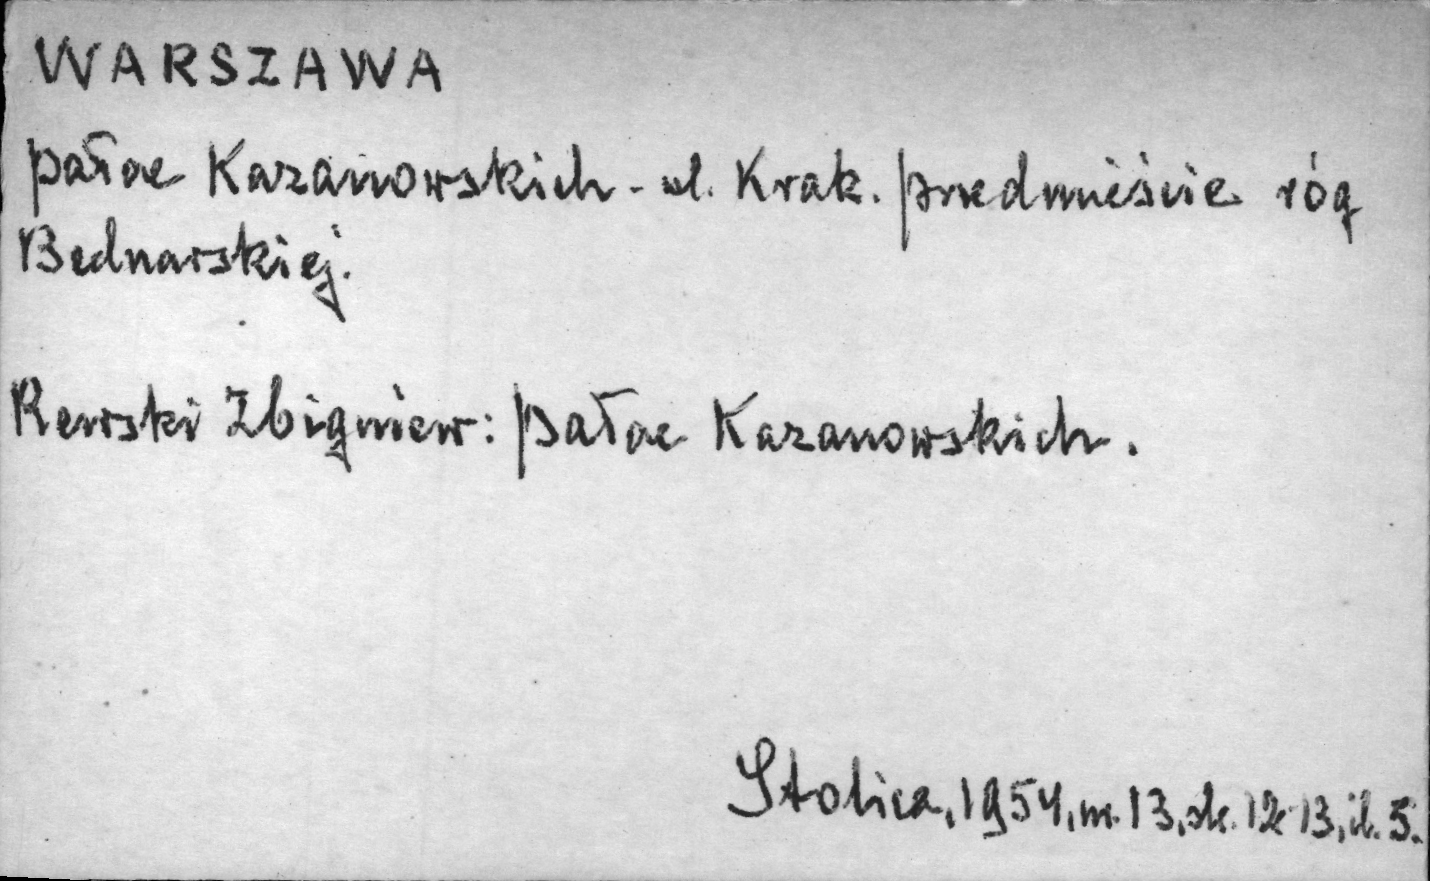 WARSZAWA
pałac Kazanowskich - ul. Krak. przedmieście róg
Bednarskiej.
Rewski Zbigniew: pałac Kazanowskich.
Stolica, 1954, nr. 13, str. 12 13, il. 5.